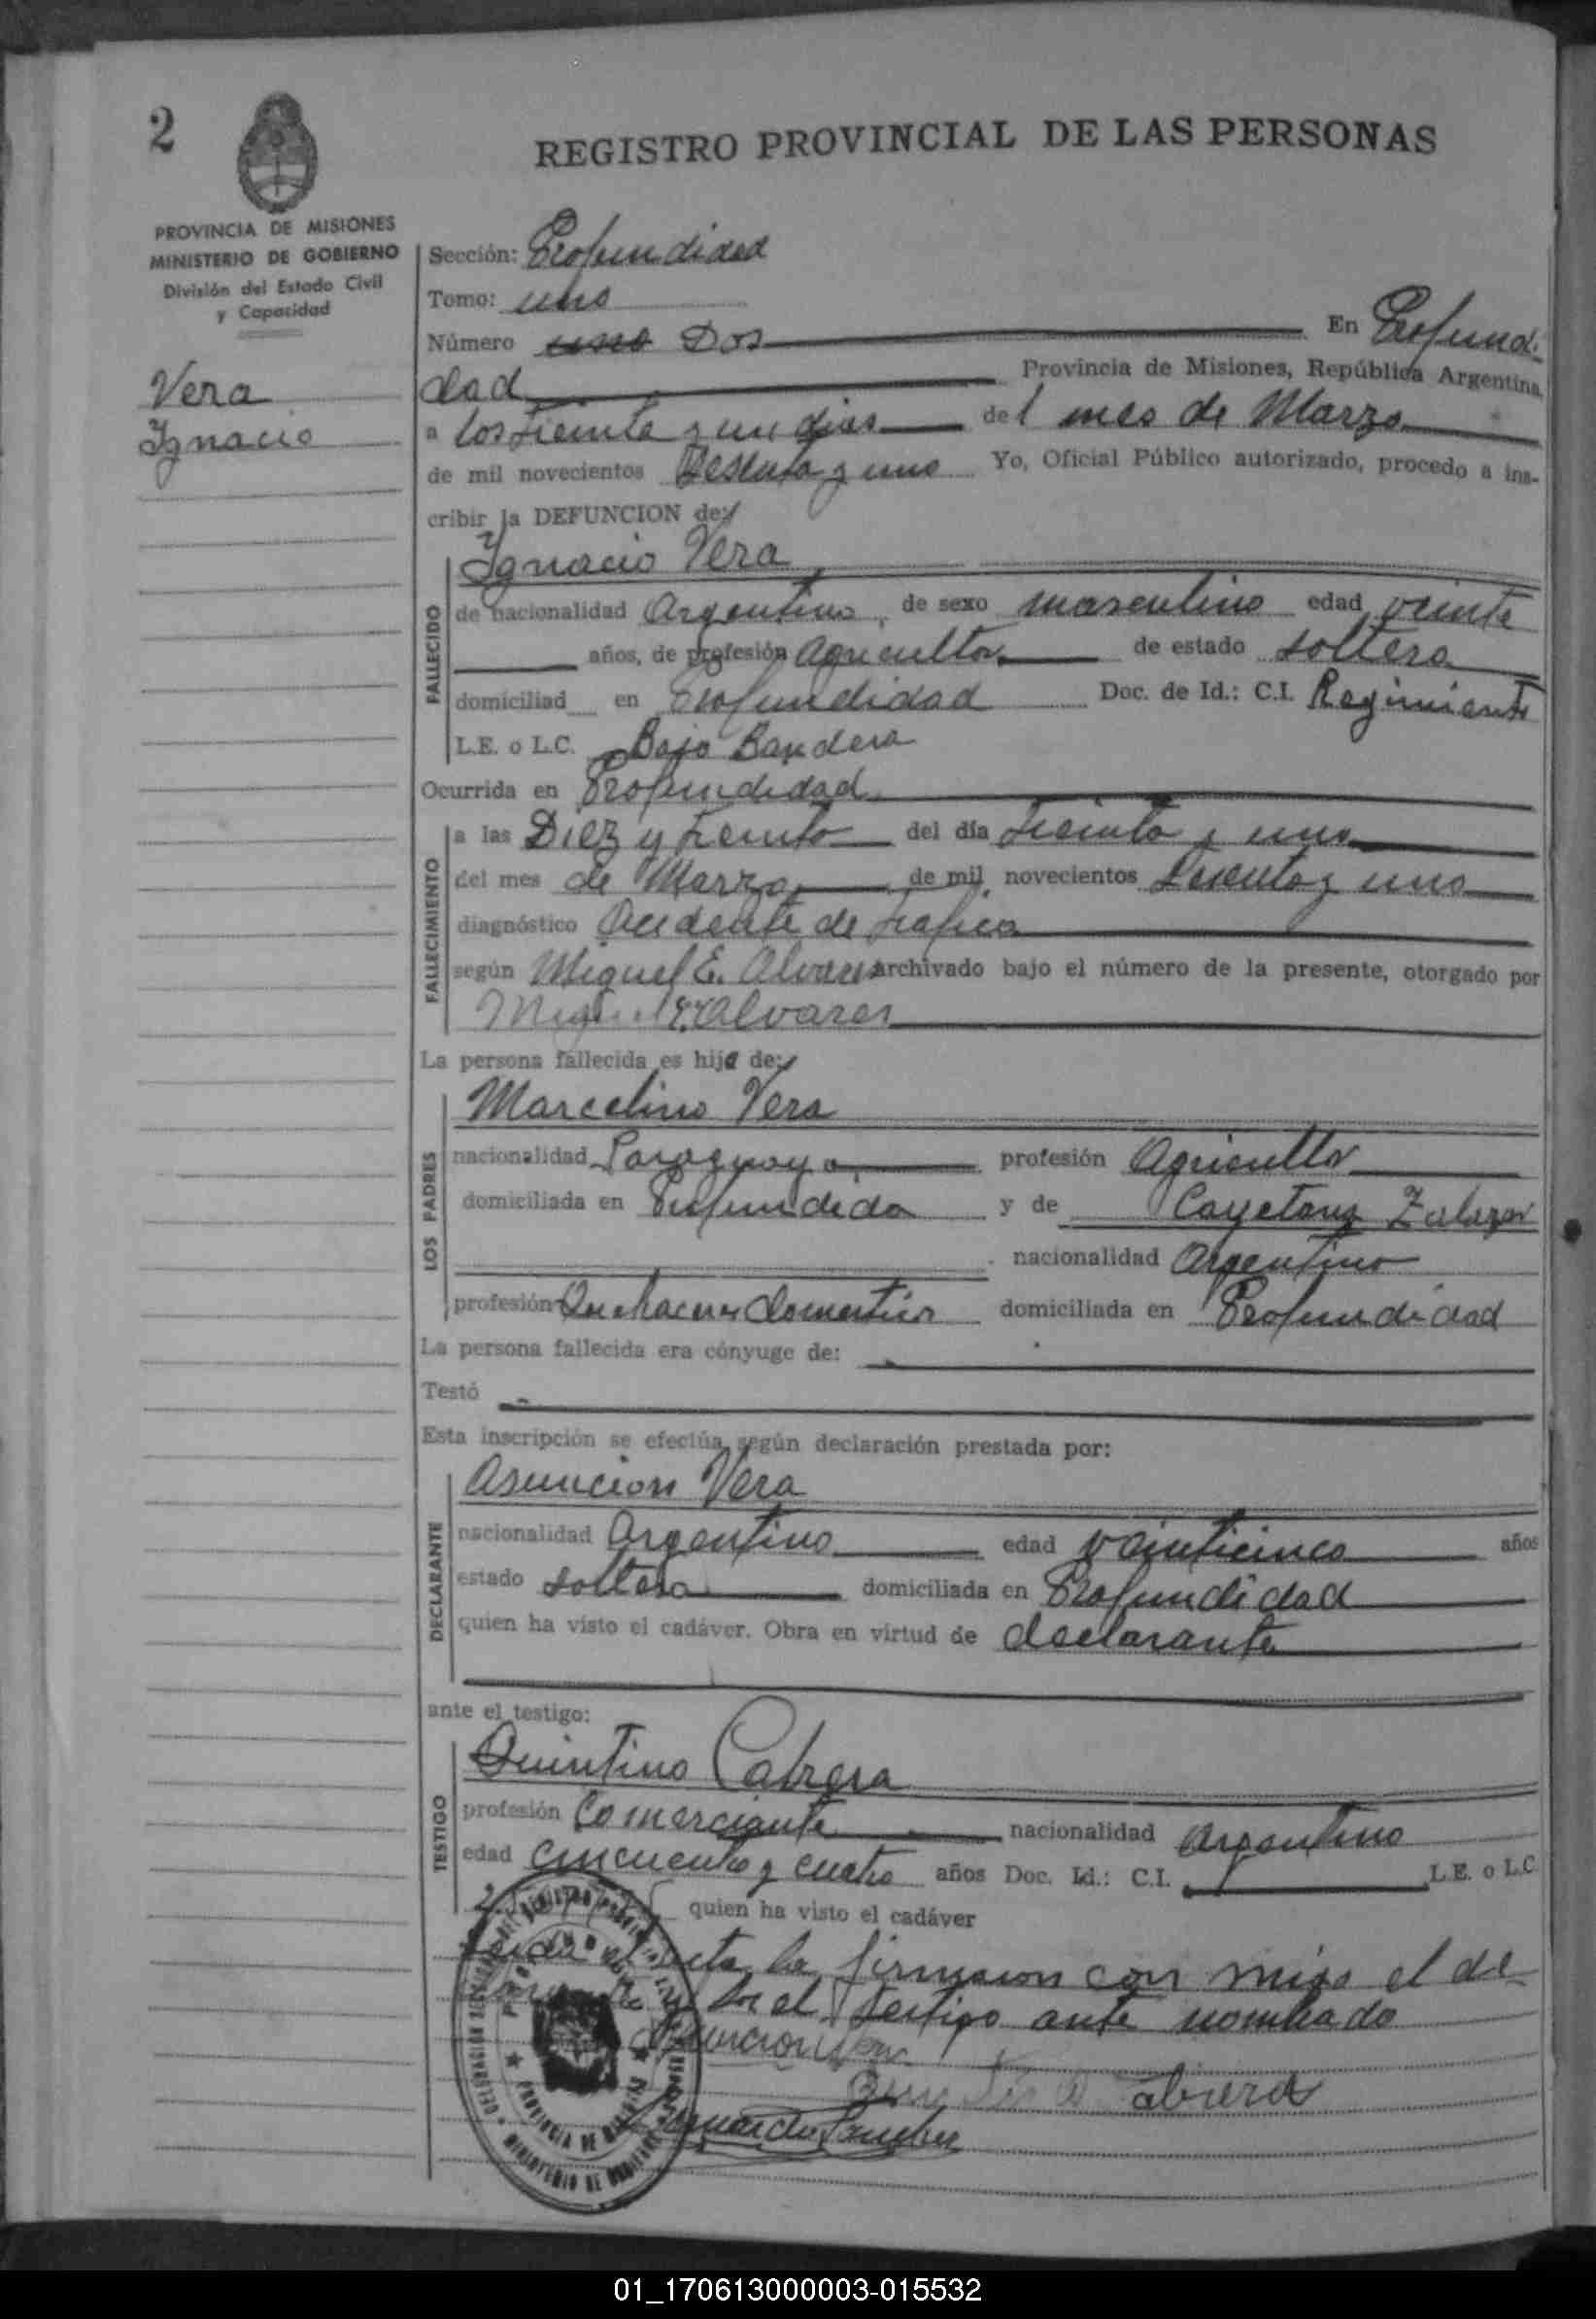 2
REGISTRO PROVINCIAL DE LAS PERSONAS
PROVINCIA DE MISIONES
MINISTERIO DE GOBIERNO
División del Estado Civil
y Capacidad
Vera
Ignacio
Sección: Profundidad
Tomo: uno
Número uno Dos En Profundi
dad Provincia de Misiones, República Argentina
a los treinta y un dias del mes de Marzo
de mil novecientos sesenta y uno Yo, Oficial Público autorizado, procedo a ins-
cribir la DEFUNCION de:
FALLECIDO
Ignacio Vera
de nacionalidad Argentino de sexo masculino edad veinte
años, de profesión Agricultor de estado soltero
domiciliad en Profundidad Doc. de Id.: C.I. Regimiento
L.E. o L.C. Bajo Bandera
Ocurrida en Profundidad
FALLECIMIENTO
a las Diez y treinta del día treinta y uno
del mes de Marzo de mil novecientos sesenta y uno
diagnóstico Acidente de trafico
según Miguel E. Alvares archivado bajo el número de la presente, otorgado por
Miguel E. Alvares
La persona fallecida es hijo de:
LOS PADRES
Marcelino Vera
nacionalidad Paraguayo profesión Agricultor
domiciliada en Profundida y de Cayetana Zalazar
nacionalidad Argentino
profesión Quehaceres domestico domiciliada en Profundidad
La persona fallecida era cónyuge de:
Testó
Esta inscripción se efectúa según declaración prestada por:
DECLARANTE
Asuncion Vera
nacionalidad Argentino edad veinticinco años
estado soltero domiciliada en Profundidad
quien ha visto el cadáver. Obra en virtud de declarante
ante el testigo:
TESTIGO
Quintino Cabrera
profesión Comerciante nacionalidad Argentino
edad cincuenta y cuatro años Doc. Id.: C.I. L.E. o L.C.
quien ha visto el cadáver
acta la firmaron con migo el de
y por el testigo ante nombrado
Asuncion Vera
Cabrera
Sanchez
PROVINCIA DE MISIONES
MINISTERIO DE GOBIERNO
01_170613000003-015532